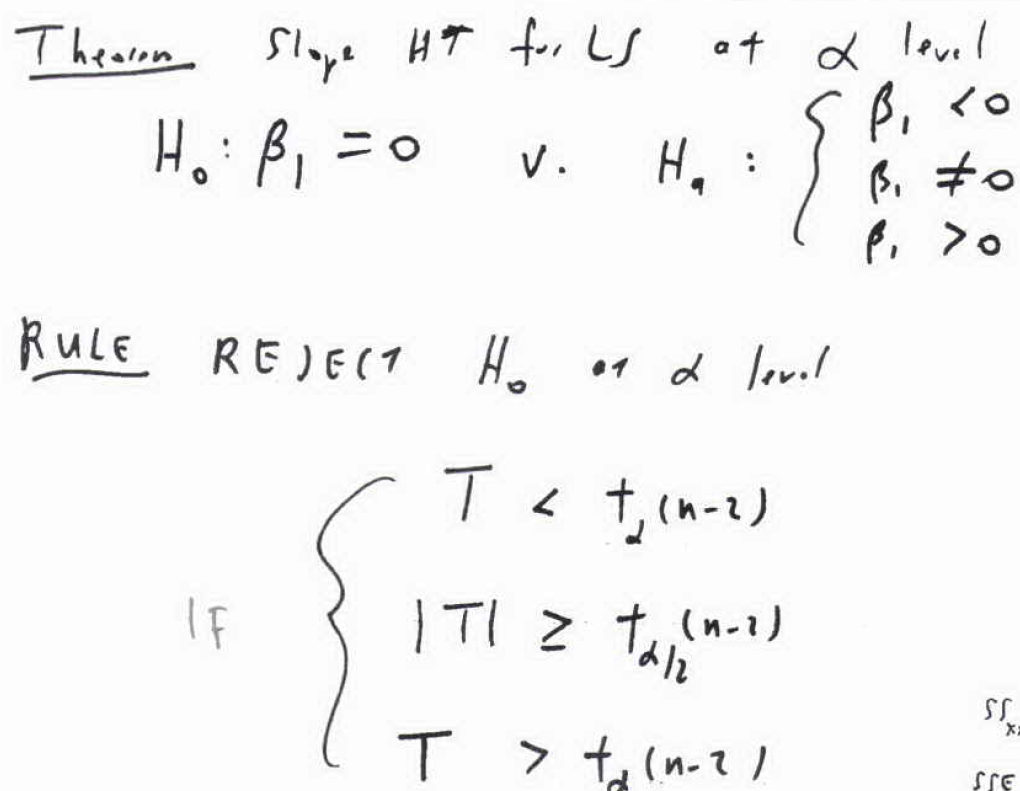 Theorem Slope HT for LS at α level
H₀: β₁ = 0 v. Hₐ: { β₁ < 0
β₁ ≠ 0
β₁ > 0
RULE REJECT H₀ at α level
T < t_α(n-2)
IF { |T| ≥ t_α/2(n-2)
T > t_α(n-2)
SS_xx
SSE